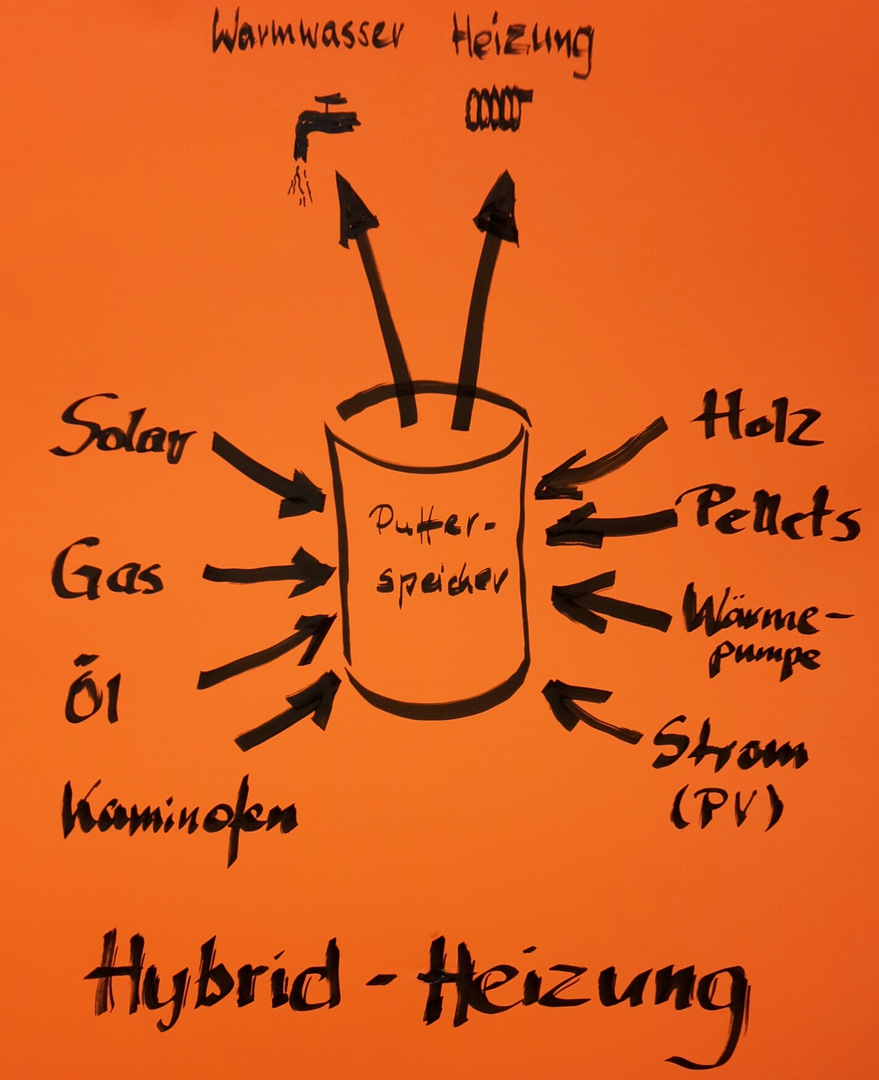 Warmwasser Heizung
Solar
Gas
Öl
Kaminofen
Puffer-
speicher
Holz
Pellets
Wärme-
pumpe
Strom
(PV)
Hybrid-Heizung